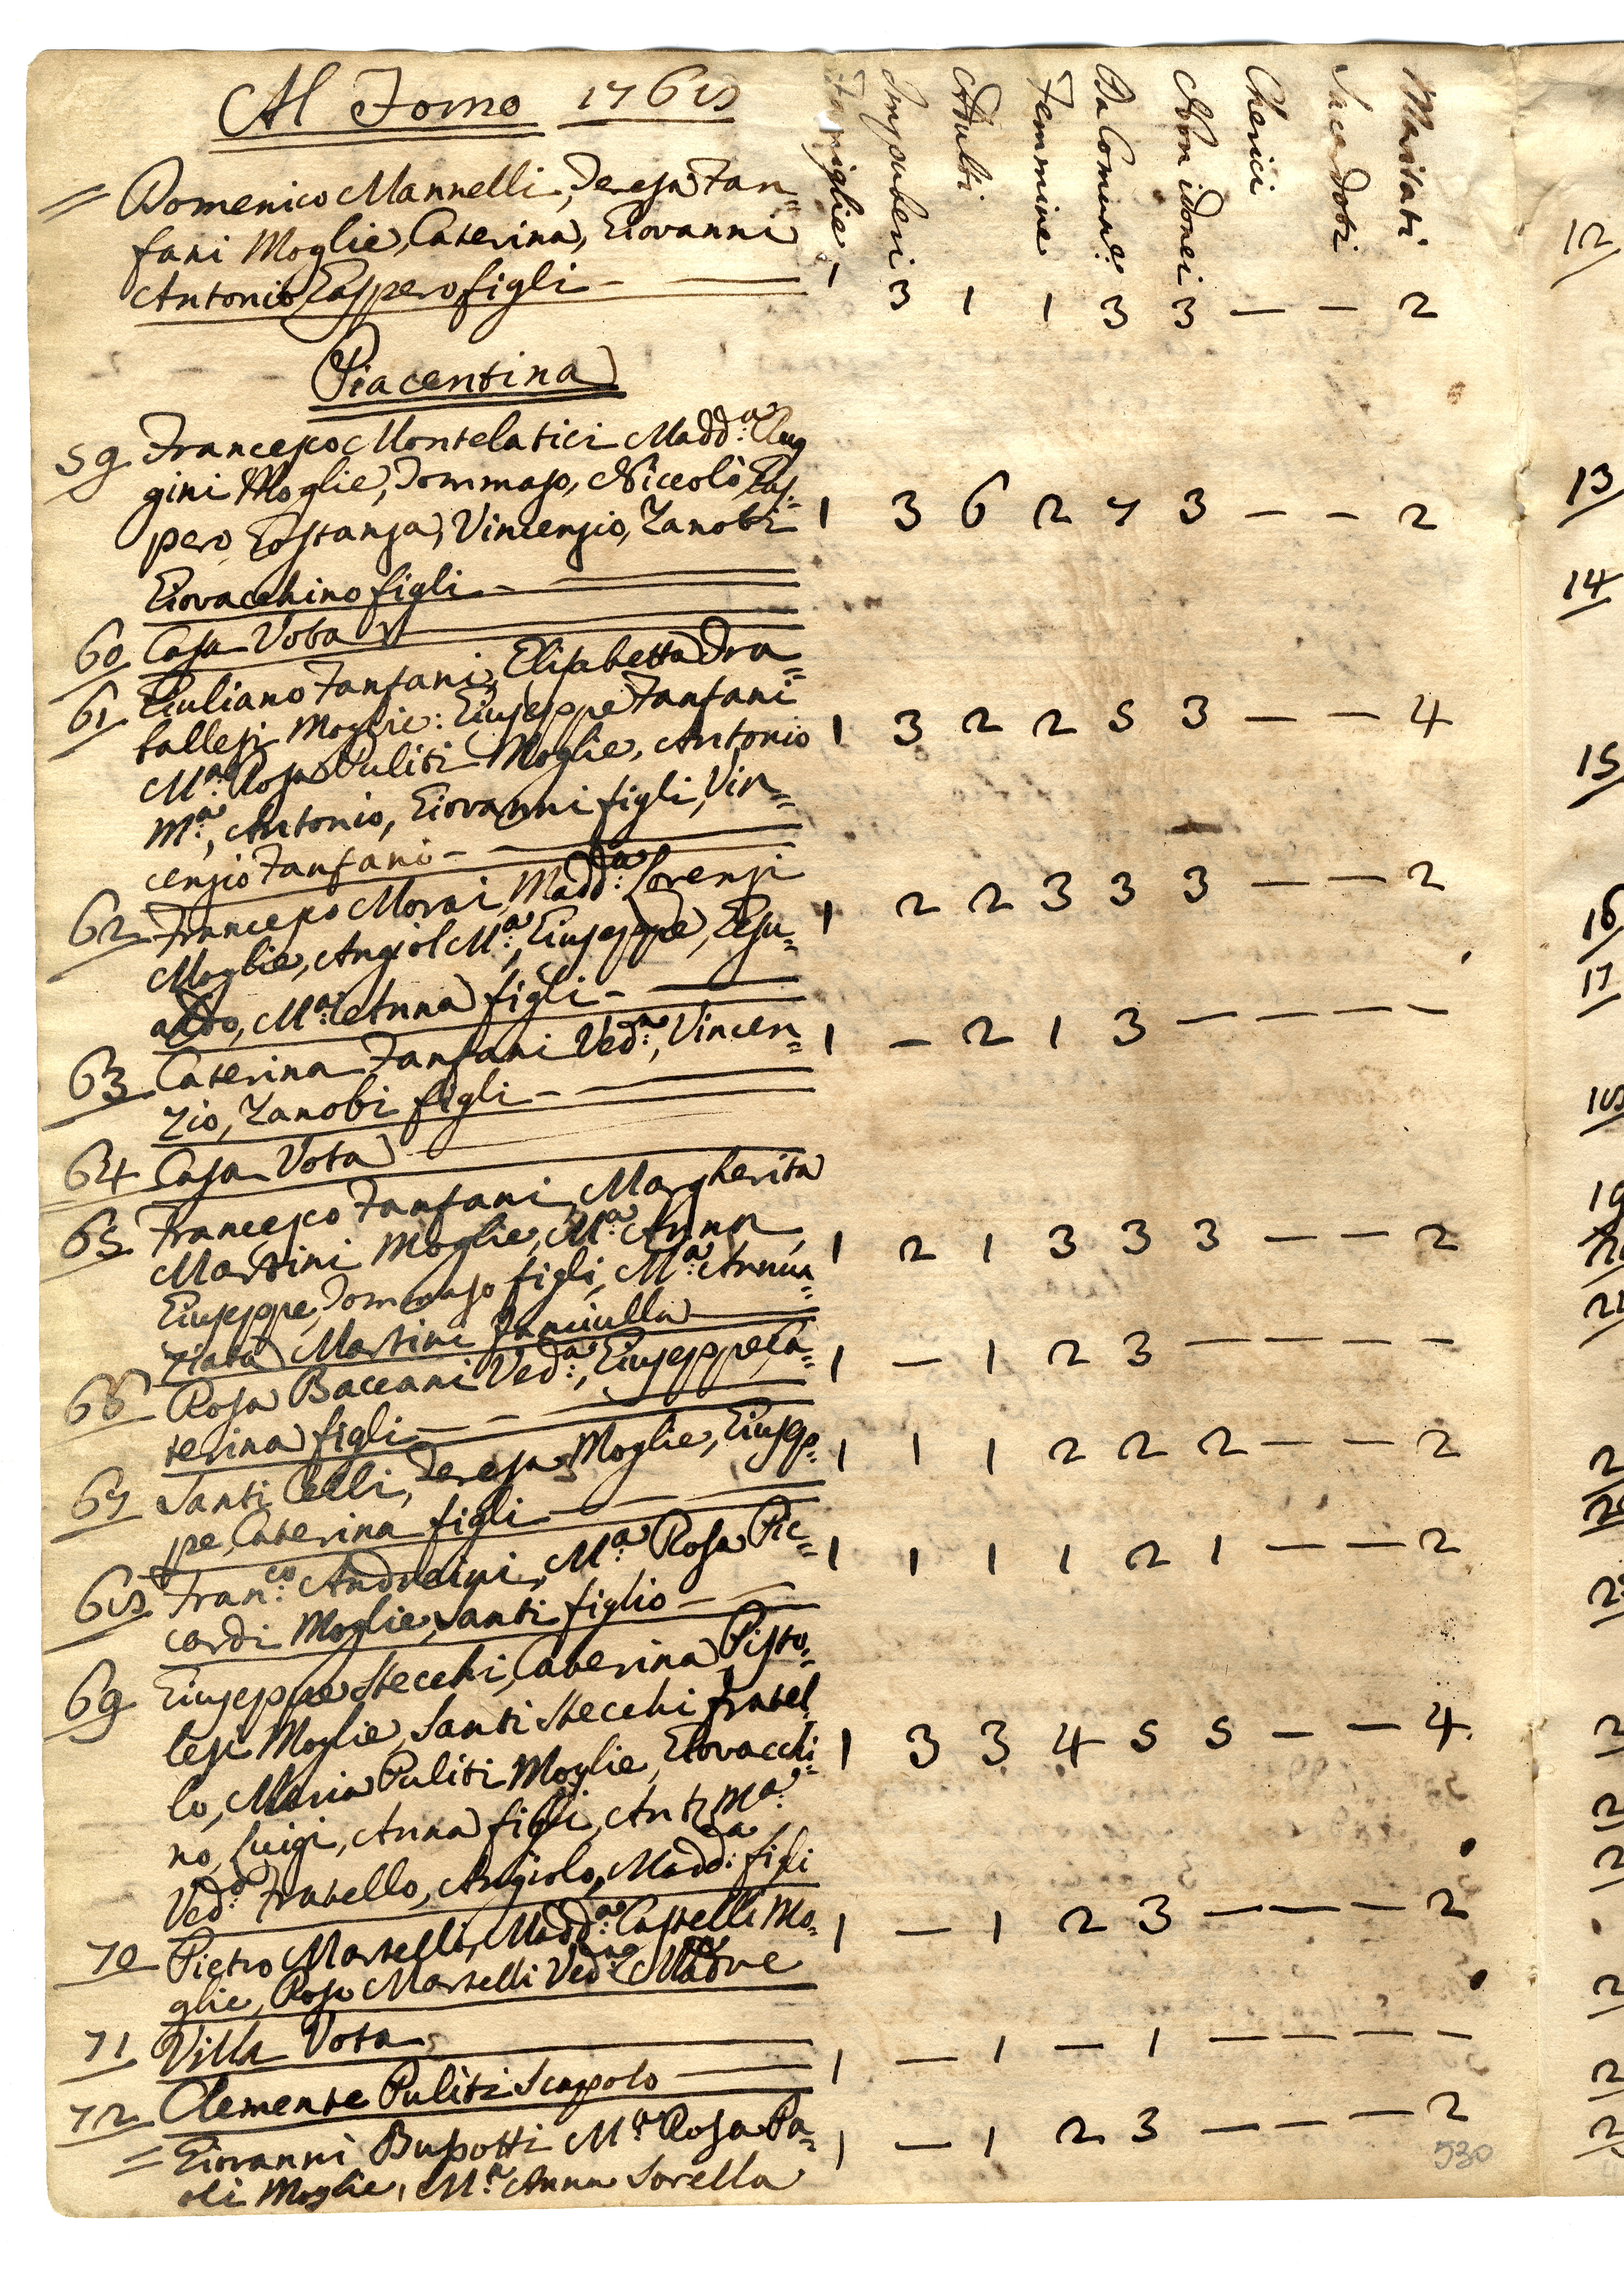 Al Forno 1768
Famiglie Impuberi Adulti Femmine Da Comun.e Non idonei Cherici Sacerdoti Maritati
= Domenico Mannelli, Teresa Fan=
fani Moglie, Caterina, Giovanni
Antonio Gaspero figli — — 1 3 1 1 3 3 — — 2
Piacentina
59 Francesco Montelatici Madd.a Pug
gini Moglie, Tommaso, Niccolò Gas=
pero, Costanza, Vincenzio, Zanobi 1 3 6 2 7 3 — — 2
Giovacchino figli —
60 Casa Vota
61 Giuliano Fanfani, Elisabetta Fra=
tallesi Moglie: Giuseppe Fanfani 1 3 2 2 5 3 — — 4
M.a Rosa Puliti Moglie, Antonio
M.a, Antonio, Giovanni figli, Vin=
cenzio Fanfani —
62 Francesco Morai, Madd.a Lorenzi 1 2 2 3 3 3 — — 2
Moglie, Angiol M.a, Giuseppe, Gesu=
aldo, M.a Anna figli —
63 Caterina Fanfani Ved.a, Vincen= 1 — 2 1 3 — — — —
zio, Zanobi figli —
64 Casa Vota
65 Francesco Fanfani, Margherita
Martini Moglie, M.a Anna, 1 2 1 3 3 3 — — 2
Giuseppe, Tommaso figli, M.a Annun=
ziata Martini fanciulla
66 Rosa Baccani Ved.a, Giuseppe Ca= 1 — 1 2 3 — — — —
terina figli —
67 Santi Celli, Teresa Moglie, Giusep= 1 1 1 2 2 2 — — 2
pe, Caterina figli —
68 Fran.co Andreini, M.a Rosa Pic= 1 1 1 1 2 1 — — 2
cardi Moglie, Santi figlio —
69 Giuseppe Stecchi, Caterina Pisto=
lesi Moglie, Santi Stecchi fratel
lo, Maria Puliti Moglie, Giovacchi= 1 3 3 4 5 5 — — 4
no, Luigi, Anna figli, Ant. M.a
Ved.o Fratello, Angiolo, Madd.a figli
70 Pietro Martelli, Madd.a Castelli Mo= 1 — 1 2 3 — — — 2
glie, Rosa Martelli Ved.a Madre
71 Villa Vota
72 Clemente Puliti Scapolo — 1 — 1 — 1 — — — —
= Giovanni Bussotti M.a Rosa Pa= 1 — 1 2 3 — — — 2
oli Moglie, M.a Anna Sorella
530
12
13
14
15
16
17
18
19
21